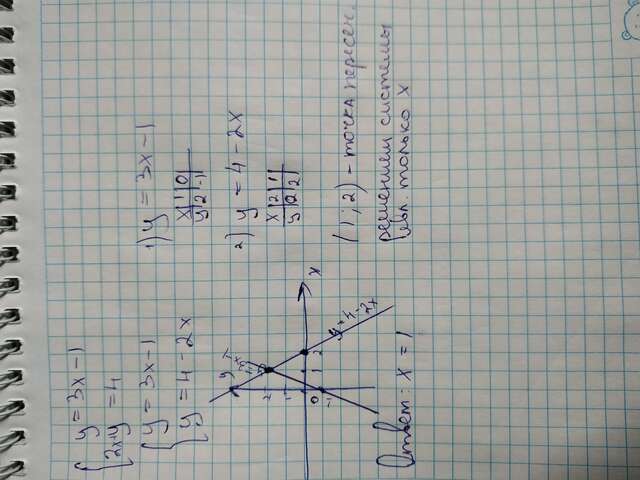 { y = 3x - 1
{ 2x+y = 4
{ y = 3x - 1
{ y = 4 - 2x
1) y = 3x - 1
x | 1 | 0
y | 2 | -1
2) y = 4 - 2x
x | 2 | 1
y | 0 | 2
y
y = 3x - 1
2
1
0
1
2
-1
x
y = 4 - 2x
(1; 2) - точка пересеч.
решением системы
явл. только x
Ответ: x = 1